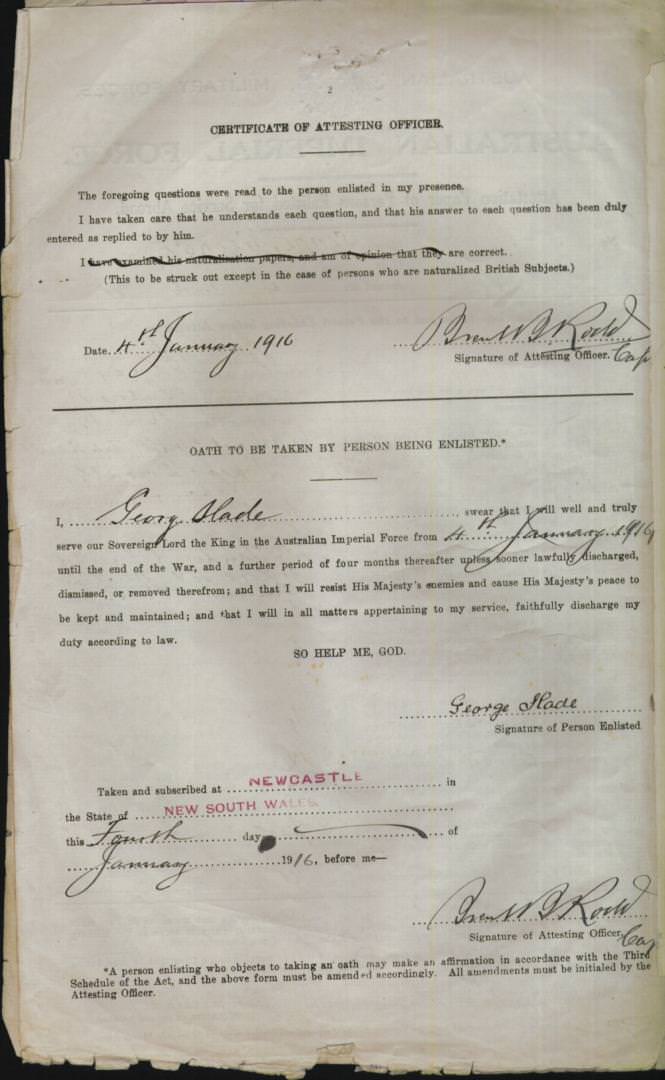 2
CERTIFICATE OF ATTESTING OFFICER.
The foregoing questions were read to the person enlisted in my presence.
I have taken care that he understands each question, and that his answer to each question has been duly
entered as replied to by him.
I have examined his naturalisation papers, and am of opinion that they are correct.
(This to be struck out except in the case of persons who are naturalized British Subjects.)
Date 4th January 1916
Signature of Attesting Officer. Cap
OATH TO BE TAKEN BY PERSON BEING ENLISTED.*
I, George Slade swear that I will well and truly
serve our Sovereign Lord the King in the Australian Imperial Force from 4th January 1916
until the end of the War, and a further period of four months thereafter unless sooner lawfully discharged,
dismissed, or removed therefrom; and that I will resist His Majesty's enemies and cause His Majesty's peace to
be kept and maintained; and that I will in all matters appertaining to my service, faithfully discharge my
duty according to law.
SO HELP ME, GOD.
George Slade
Signature of Person Enlisted
Taken and subscribed at NEWCASTLE in
the State of NEW SOUTH WALES
this Fourth day of
January 1916, before me—
Signature of Attesting Officer. Cap
*A person enlisting who objects to taking an oath may make an affirmation in accordance with the Third
Schedule of the Act, and the above form must be amended accordingly. All amendments must be initialed by the
Attesting Officer.